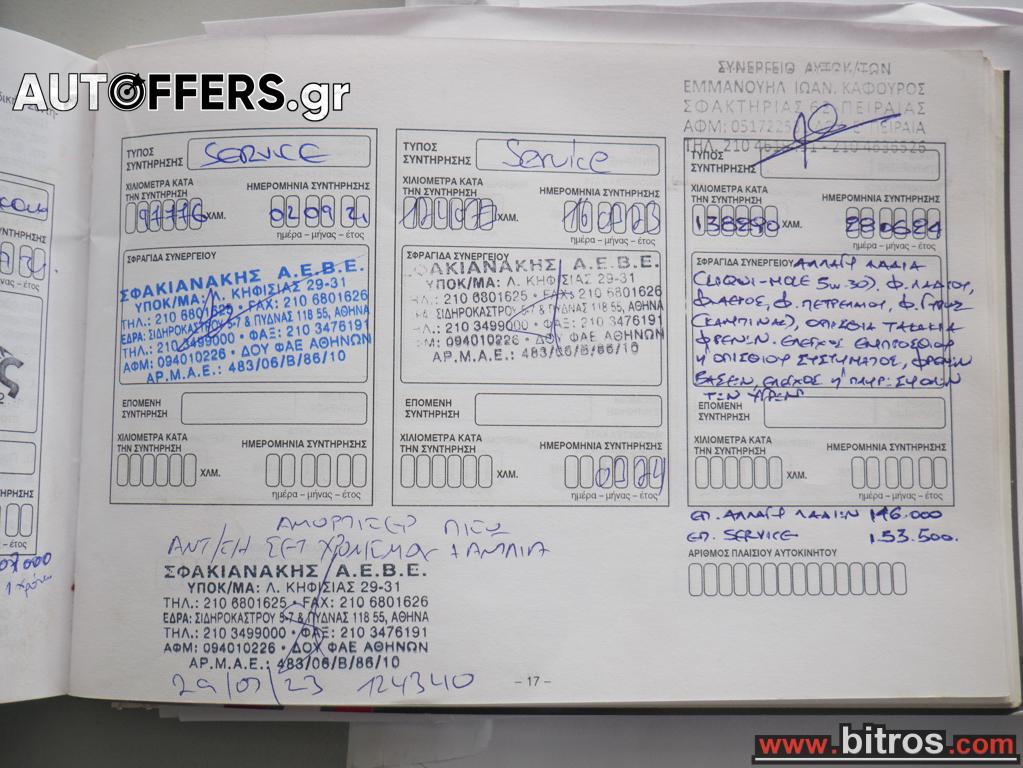 AUTOFFERS.gr
ΤΥΠΟΣ
ΣΥΝΤΗΡΗΣΗΣ
SERVICE
ΧΙΛΙΟΜΕΤΡΑ ΚΑΤΑ
ΤΗΝ ΣΥΝΤΗΡΗΣΗ
97776 ΧΛΜ.
ΗΜΕΡΟΜΗΝΙΑ ΣΥΝΤΗΡΗΣΗΣ
02 09 21
ημέρα – μήνας – έτος
ΣΦΡΑΓΙΔΑ ΣΥΝΕΡΓΕΙΟΥ
ΣΦΑΚΙΑΝΑΚΗΣ Α.Ε.Β.Ε.
ΥΠΟΚ/ΜΑ: Λ. ΚΗΦΙΣΙΑΣ 29-31
ΤΗΛ.: 210 6801625 • FAX: 210 6801626
ΕΔΡΑ: ΣΙΔΗΡΟΚΑΣΤΡΟΥ 5-7 & ΠΥΔΝΑΣ 118 55, ΑΘΗΝΑ
ΤΗΛ.: 210 3499000 • ΦΑΞ: 210 3476191
ΑΦΜ: 094010226 • ΔΟΥ ΦΑΕ ΑΘΗΝΩΝ
ΑΡ.Μ.Α.Ε.: 483/06/Β/86/10
ΕΠΟΜΕΝΗ
ΣΥΝΤΗΡΗΣΗ
ΧΙΛΙΟΜΕΤΡΑ ΚΑΤΑ
ΤΗΝ ΣΥΝΤΗΡΗΣΗ
ΧΛΜ.
ΗΜΕΡΟΜΗΝΙΑ ΣΥΝΤΗΡΗΣΗΣ
ημέρα – μήνας – έτος
ΤΥΠΟΣ
ΣΥΝΤΗΡΗΣΗΣ
Service
ΧΙΛΙΟΜΕΤΡΑ ΚΑΤΑ
ΤΗΝ ΣΥΝΤΗΡΗΣΗ
ΧΛΜ.
ΗΜΕΡΟΜΗΝΙΑ ΣΥΝΤΗΡΗΣΗΣ
ημέρα – μήνας – έτος
ΣΦΡΑΓΙΔΑ ΣΥΝΕΡΓΕΙΟΥ
ΣΦΑΚΙΑΝΑΚΗΣ Α.Ε.Β.Ε.
ΥΠΟΚ/ΜΑ: Λ. ΚΗΦΙΣΙΑΣ 29-31
ΤΗΛ.: 210 6801625 • FAX: 210 6801626
ΣΙΔΗΡΟΚΑΣΤΡΟΥ 5-7 & ΠΥΔΝΑΣ 118 55, ΑΘΗΝΑ
210 3499000 • ΦΑΞ: 210 3476191
: 094010226 • ΔΟΥ ΦΑΕ ΑΘΗΝΩΝ
ΑΡ.Μ.Α.Ε.: 483/06/Β/86/10
ΕΠΟΜΕΝΗ
ΣΥΝΤΗΡΗΣΗ
ΧΙΛΙΟΜΕΤΡΑ ΚΑΤΑ
ΤΗΝ ΣΥΝΤΗΡΗΣΗ
ΧΛΜ.
ΗΜΕΡΟΜΗΝΙΑ ΣΥΝΤΗΡΗΣΗΣ
07 24
ημέρα – μήνας – έτος
ΣΥΝΕΡΓΕΙΟ ΑΥΤΟΚ/ΤΩΝ
ΕΜΜΑΝΟΥΗΛ ΙΩΑΝ. ΚΑΦΟΥΡΟΣ
ΣΦΑΚΤΗΡΙΑΣ ΠΕΙΡΑΙΑΣ
ΑΦΜ: ΠΕΙΡΑΙΑ
ΤΗΛ. 210
ΤΥΠΟΣ
ΣΥΝΤΗΡΗΣΗΣ
ΧΙΛΙΟΜΕΤΡΑ ΚΑΤΑ
ΤΗΝ ΣΥΝΤΗΡΗΣΗ
ΧΛΜ.
ΗΜΕΡΟΜΗΝΙΑ ΣΥΝΤΗΡΗΣΗΣ
ημέρα – μήνας – έτος
ΣΦΡΑΓΙΔΑ ΣΥΝΕΡΓΕΙΟΥ ΑΛΛΑΓΗ ΛΑΔΙΑ
(LIQUI-MOLE 5w30), Φ. ΛΑΔΙΟΥ,
Φ. ΑΕΡΟΣ, Φ. ΠΕΤΡΕΛΑΙΟΥ, Φ.
(ΚΑΜΠΙΝΑΣ), ΟΠΙΣΘΙΑ ΤΑΚΑΚΙΑ
ΦΡΕΝΩΝ. ΕΛΕΓΧΟΣ ΕΜΠΡΟΣΘΙΟΥ
ΟΠΙΣΘΙΟΥ ΣΥΣΤΗΜΑΤΟΣ, ΦΡΕΝΩΝ
ΕΛΕΓΧΟΣ
ΤΩΝ ΥΓΡΩΝ
ΕΠΟΜΕΝΗ
ΣΥΝΤΗΡΗΣΗ
ΧΙΛΙΟΜΕΤΡΑ ΚΑΤΑ
ΤΗΝ ΣΥΝΤΗΡΗΣΗ
ΧΛΜ.
ΗΜΕΡΟΜΗΝΙΑ ΣΥΝΤΗΡΗΣΗΣ
ημέρα – μήνας – έτος
ΕΠ. ΑΛΛΑΓΗ ΛΑΔΙΩΝ 146.000
ΕΠ. SERVICE 153.500.
ΑΡΙΘΜΟΣ ΠΛΑΙΣΙΟΥ ΑΥΤΟΚΙΝΗΤΟΥ
ΑΜΟΡΤΙΣΕΡ ΠΙΣΩ
ΑΝΤ/ΣΗ ΣΕΤ ΧΡΟΝΙΣΜΟΥ + ΑΝΤΛΙΑ
ΣΦΑΚΙΑΝΑΚΗΣ Α.Ε.Β.Ε.
ΥΠΟΚ/ΜΑ: Λ. ΚΗΦΙΣΙΑΣ 29-31
ΤΗΛ.: 210 6801625 • FAX: 210 6801626
ΕΔΡΑ: ΣΙΔΗΡΟΚΑΣΤΡΟΥ 5-7 & ΠΥΔΝΑΣ 118 55, ΑΘΗΝΑ
ΤΗΛ.: 210 3499000 • ΦΑΞ: 210 3476191
ΑΦΜ: 094010226 • ΔΟΥ ΦΑΕ ΑΘΗΝΩΝ
ΑΡ.Μ.Α.Ε.: 483/06/Β/86/10
29/07/23 124340
– 17 –
www.bitros.com